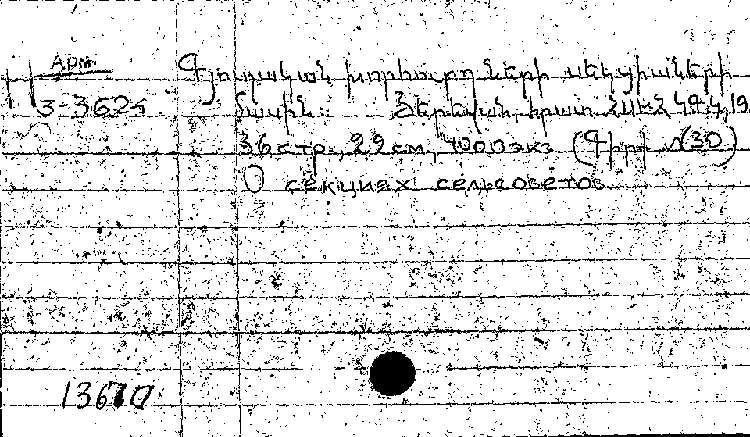 Арм.
Գյուղական խորհուրդների սեկցիաների
3-3625 մասին. Յերեվան, հրատ. ՀՍԽՀ ԿԳԿ, 19
36 стр., 22 см, 4000 экз (Գիրք № 30)
О секциях сельсоветов
13670